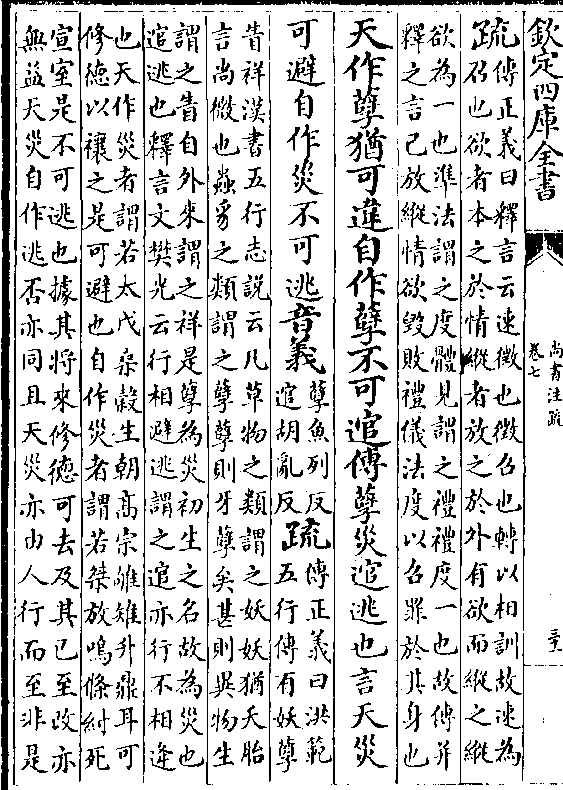 欽定四庫全書
尚書注疏
卷七
三十
疏傳正義曰釋言云速徵也徵召也轉以相訓故速為
召也欲者本之於情縱者放之於外有欲而縱之縱
欲為一也準法謂之度體見謂之禮禮度一也故傳并
釋之言已放縱情欲毀敗禮儀法度以召罪於其身也
天作孽猶可違自作孽不可逭傳孽災逭逃也言天災
可避自作災不可逃音義孽魚列反
逭胡亂反疏傳正義曰洪範
五行傳有妖孽
眚祥漢書五行志說云凡草物之類謂之妖妖猶夭胎
言尚微也蟲豸之類謂之孽孽則牙孽矣甚則異物生
謂之眚自外來謂之祥是孽為災初生之名故為災也
逭逃也釋言文樊光云行相避逃謂之逭亦行不相逢
也天作災者謂若太戊桑榖生朝高宗雊雉升鼎耳可
修德以禳之是可避也自作災者謂若桀放鳴條紂死
宣室是不可逃也據其將來修德可去及其已至改亦
無益天災自作逃否亦同且天災亦由人行而至非是